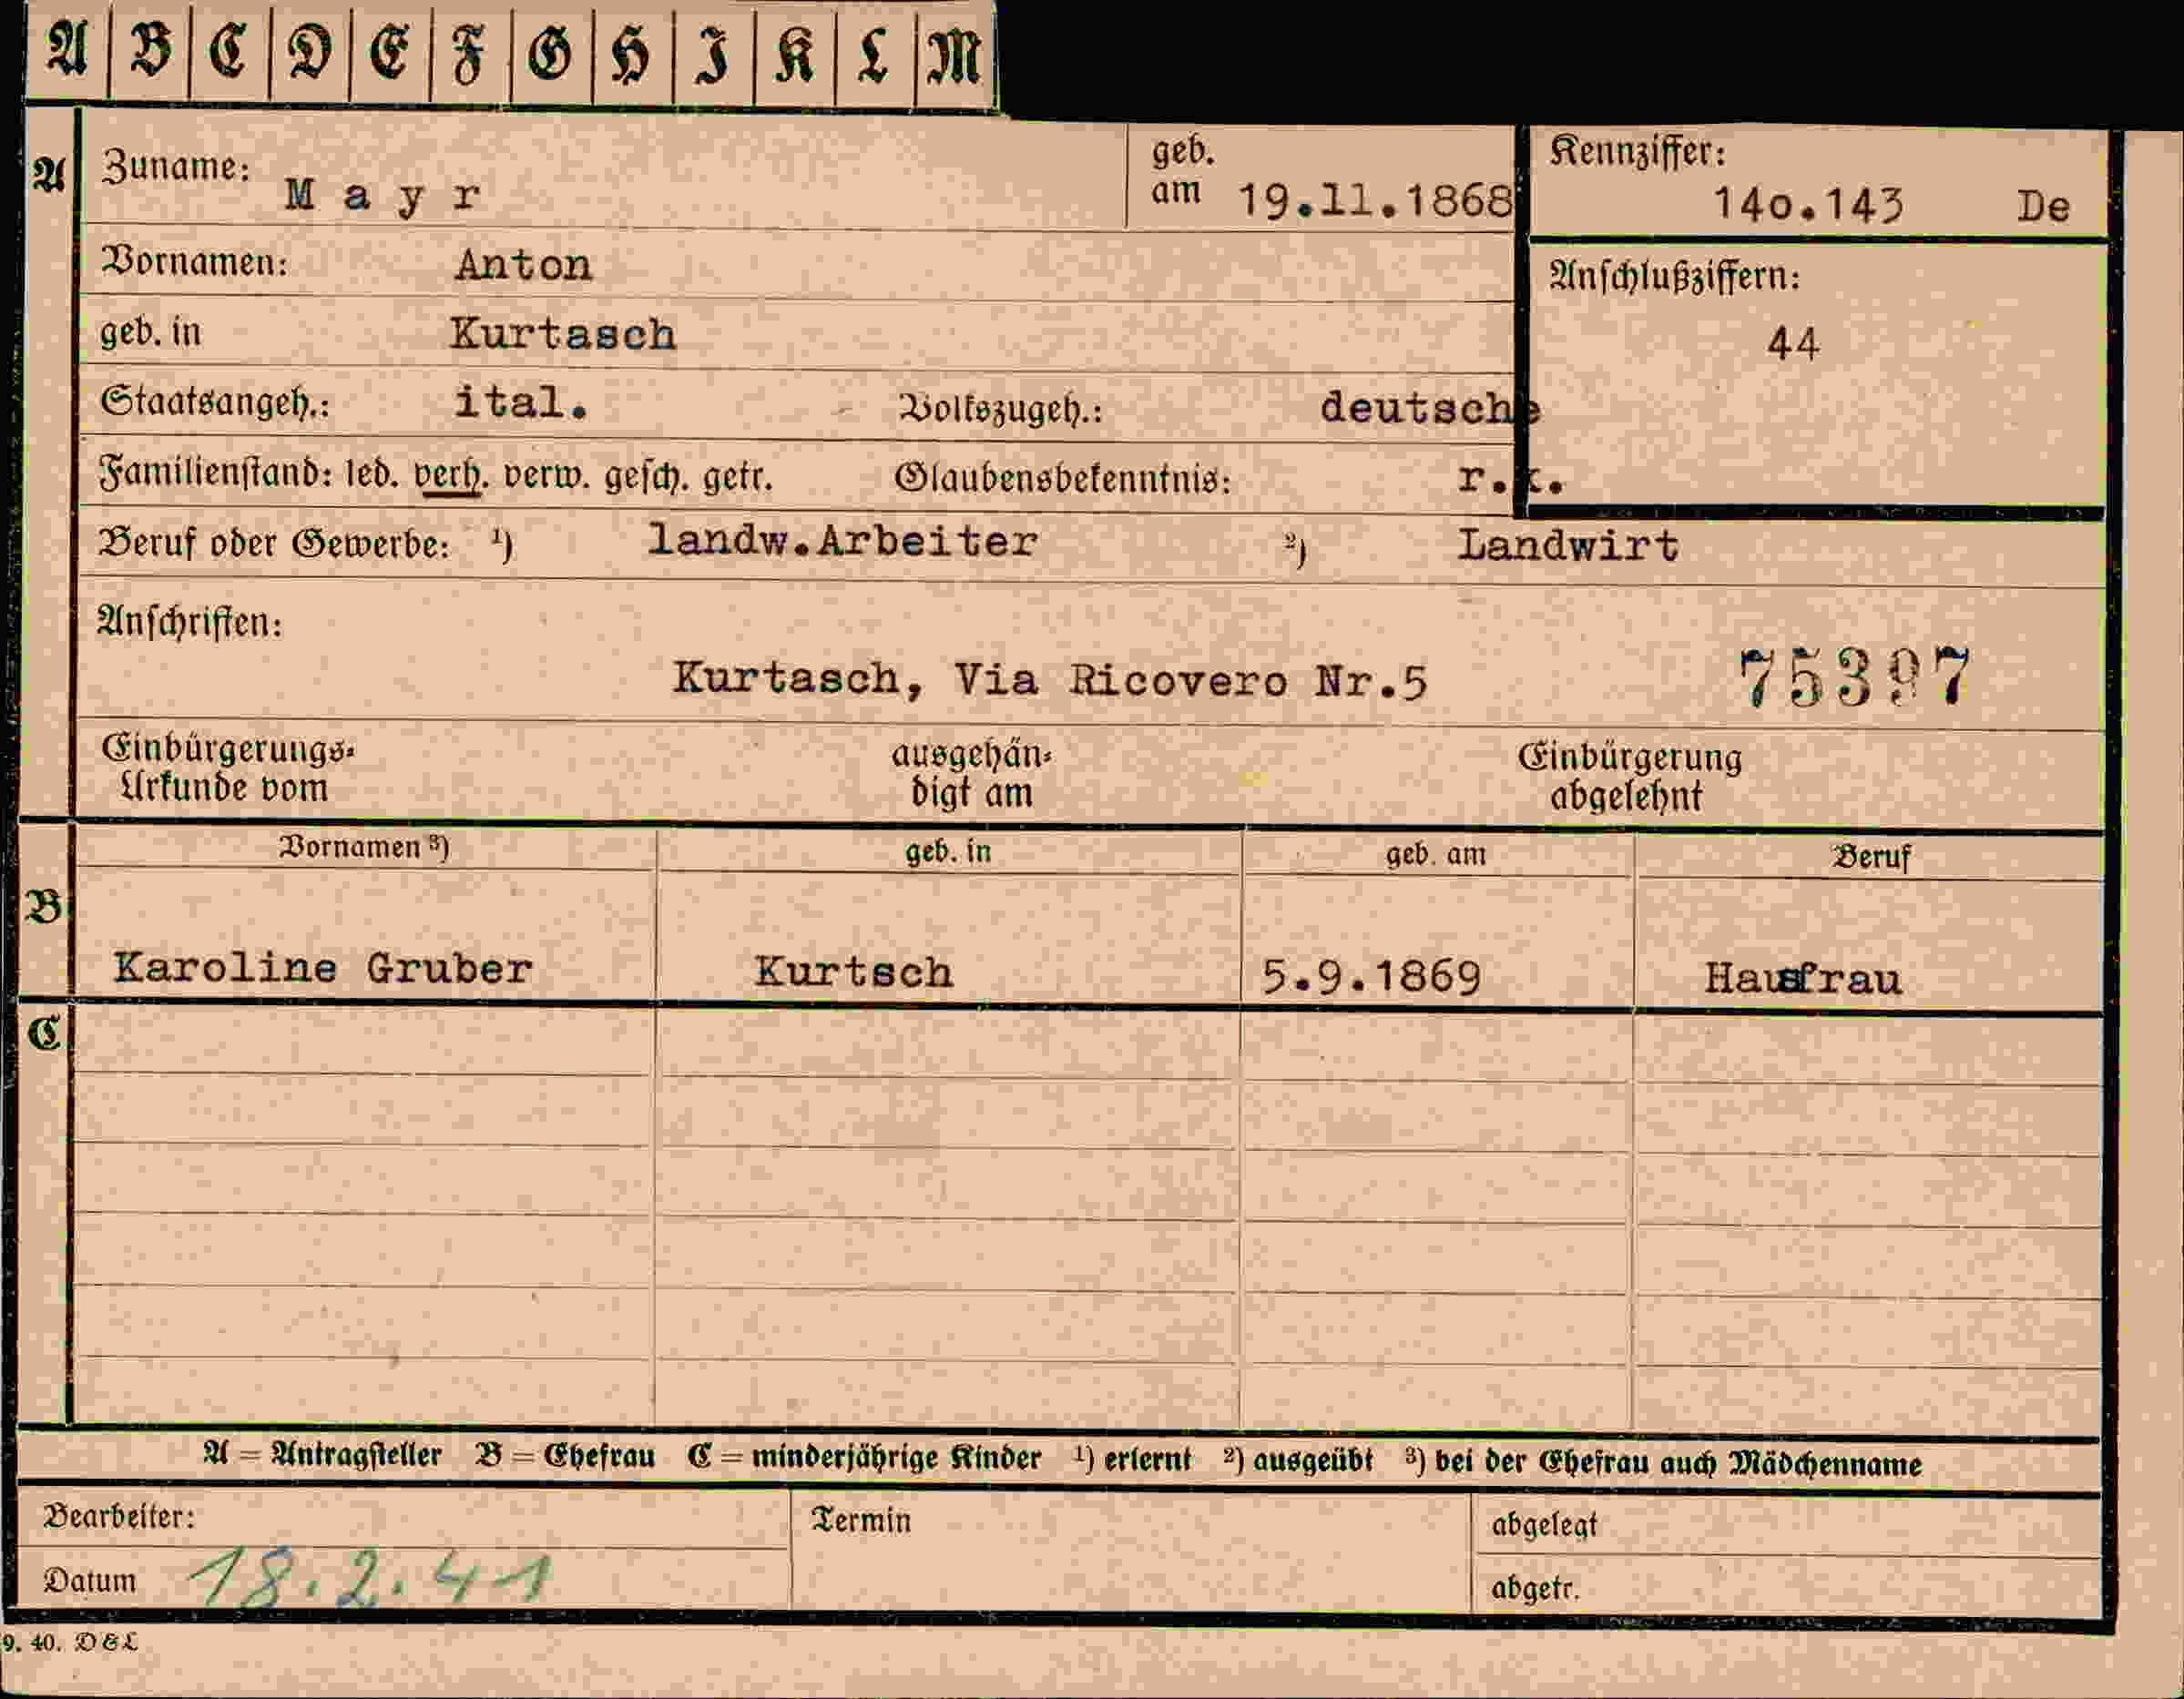 A B C D E F G H I K L M
A Zuname: Mayr geb. am 19.11.1868 Kennziffer: 14o.143 De
Vornamen: Anton Anschlußziffern:
geb. in Kurtasch 44
Staatsangeh.: ital. Volkszugeh.: deutsche
Familienstand: led. verh. verw. gesch. getr. Glaubensbekenntnis: r.k.
Beruf oder Gewerbe: 1) landw.Arbeiter 2) Landwirt
Anschriften:
Kurtasch, Via Ricovero Nr.5 75397
Einbürgerungs- ausgehän- Einbürgerung
Urkunde vom digt am abgelehnt
Vornamen 3) geb. in geb. am Beruf
B
Karoline Gruber Kurtsch 5.9.1869 Hausfrau
C
A = Antragsteller B = Ehefrau C = minderjährige Kinder 1) erlernt 2) ausgeübt 3) bei der Ehefrau auch Mädchenname
Bearbeiter: Termin abgelegt
Datum 18.2.41 abgetr.
9. 40. D & L